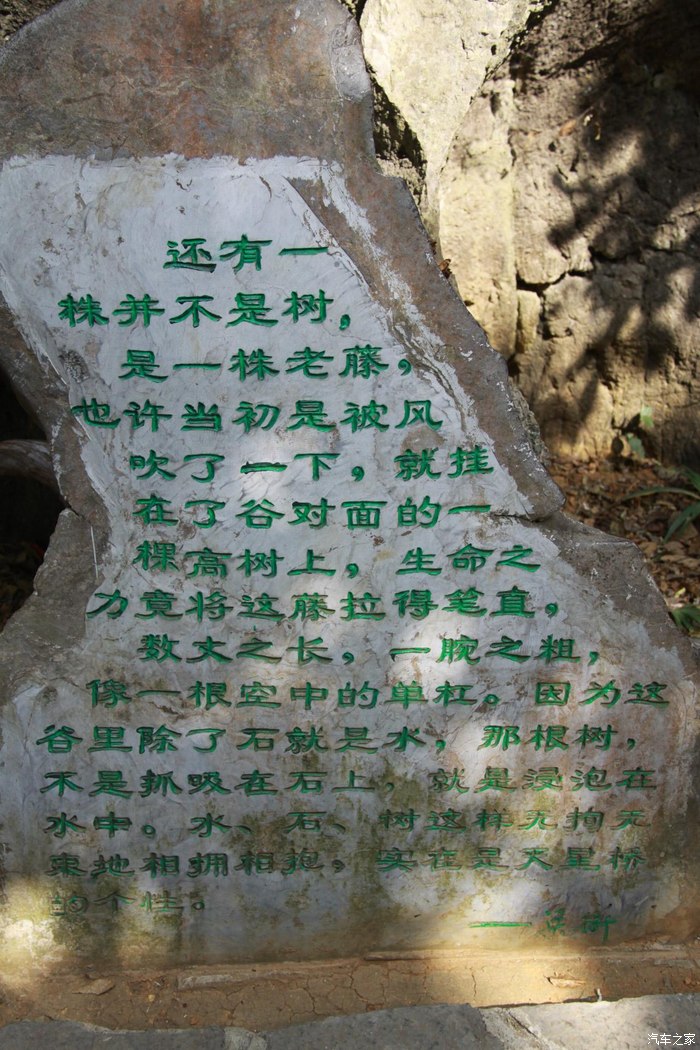 还有一
株并不是树，
是一株老藤，
也许当初是被风
吹了一下，就挂
在了谷对面的一
棵高树上，生命之
力竟将这藤拉得笔直，
数丈之长，一腕之粗，
像一根空中的单杠。因为这
谷里除了石就是水，那根树，
不是抓吸在石上，就是浸泡在
水中。水、石、树这样无拘无
束地相拥相抱，实在是天星桥
的个性。
——梁衡
汽车之家